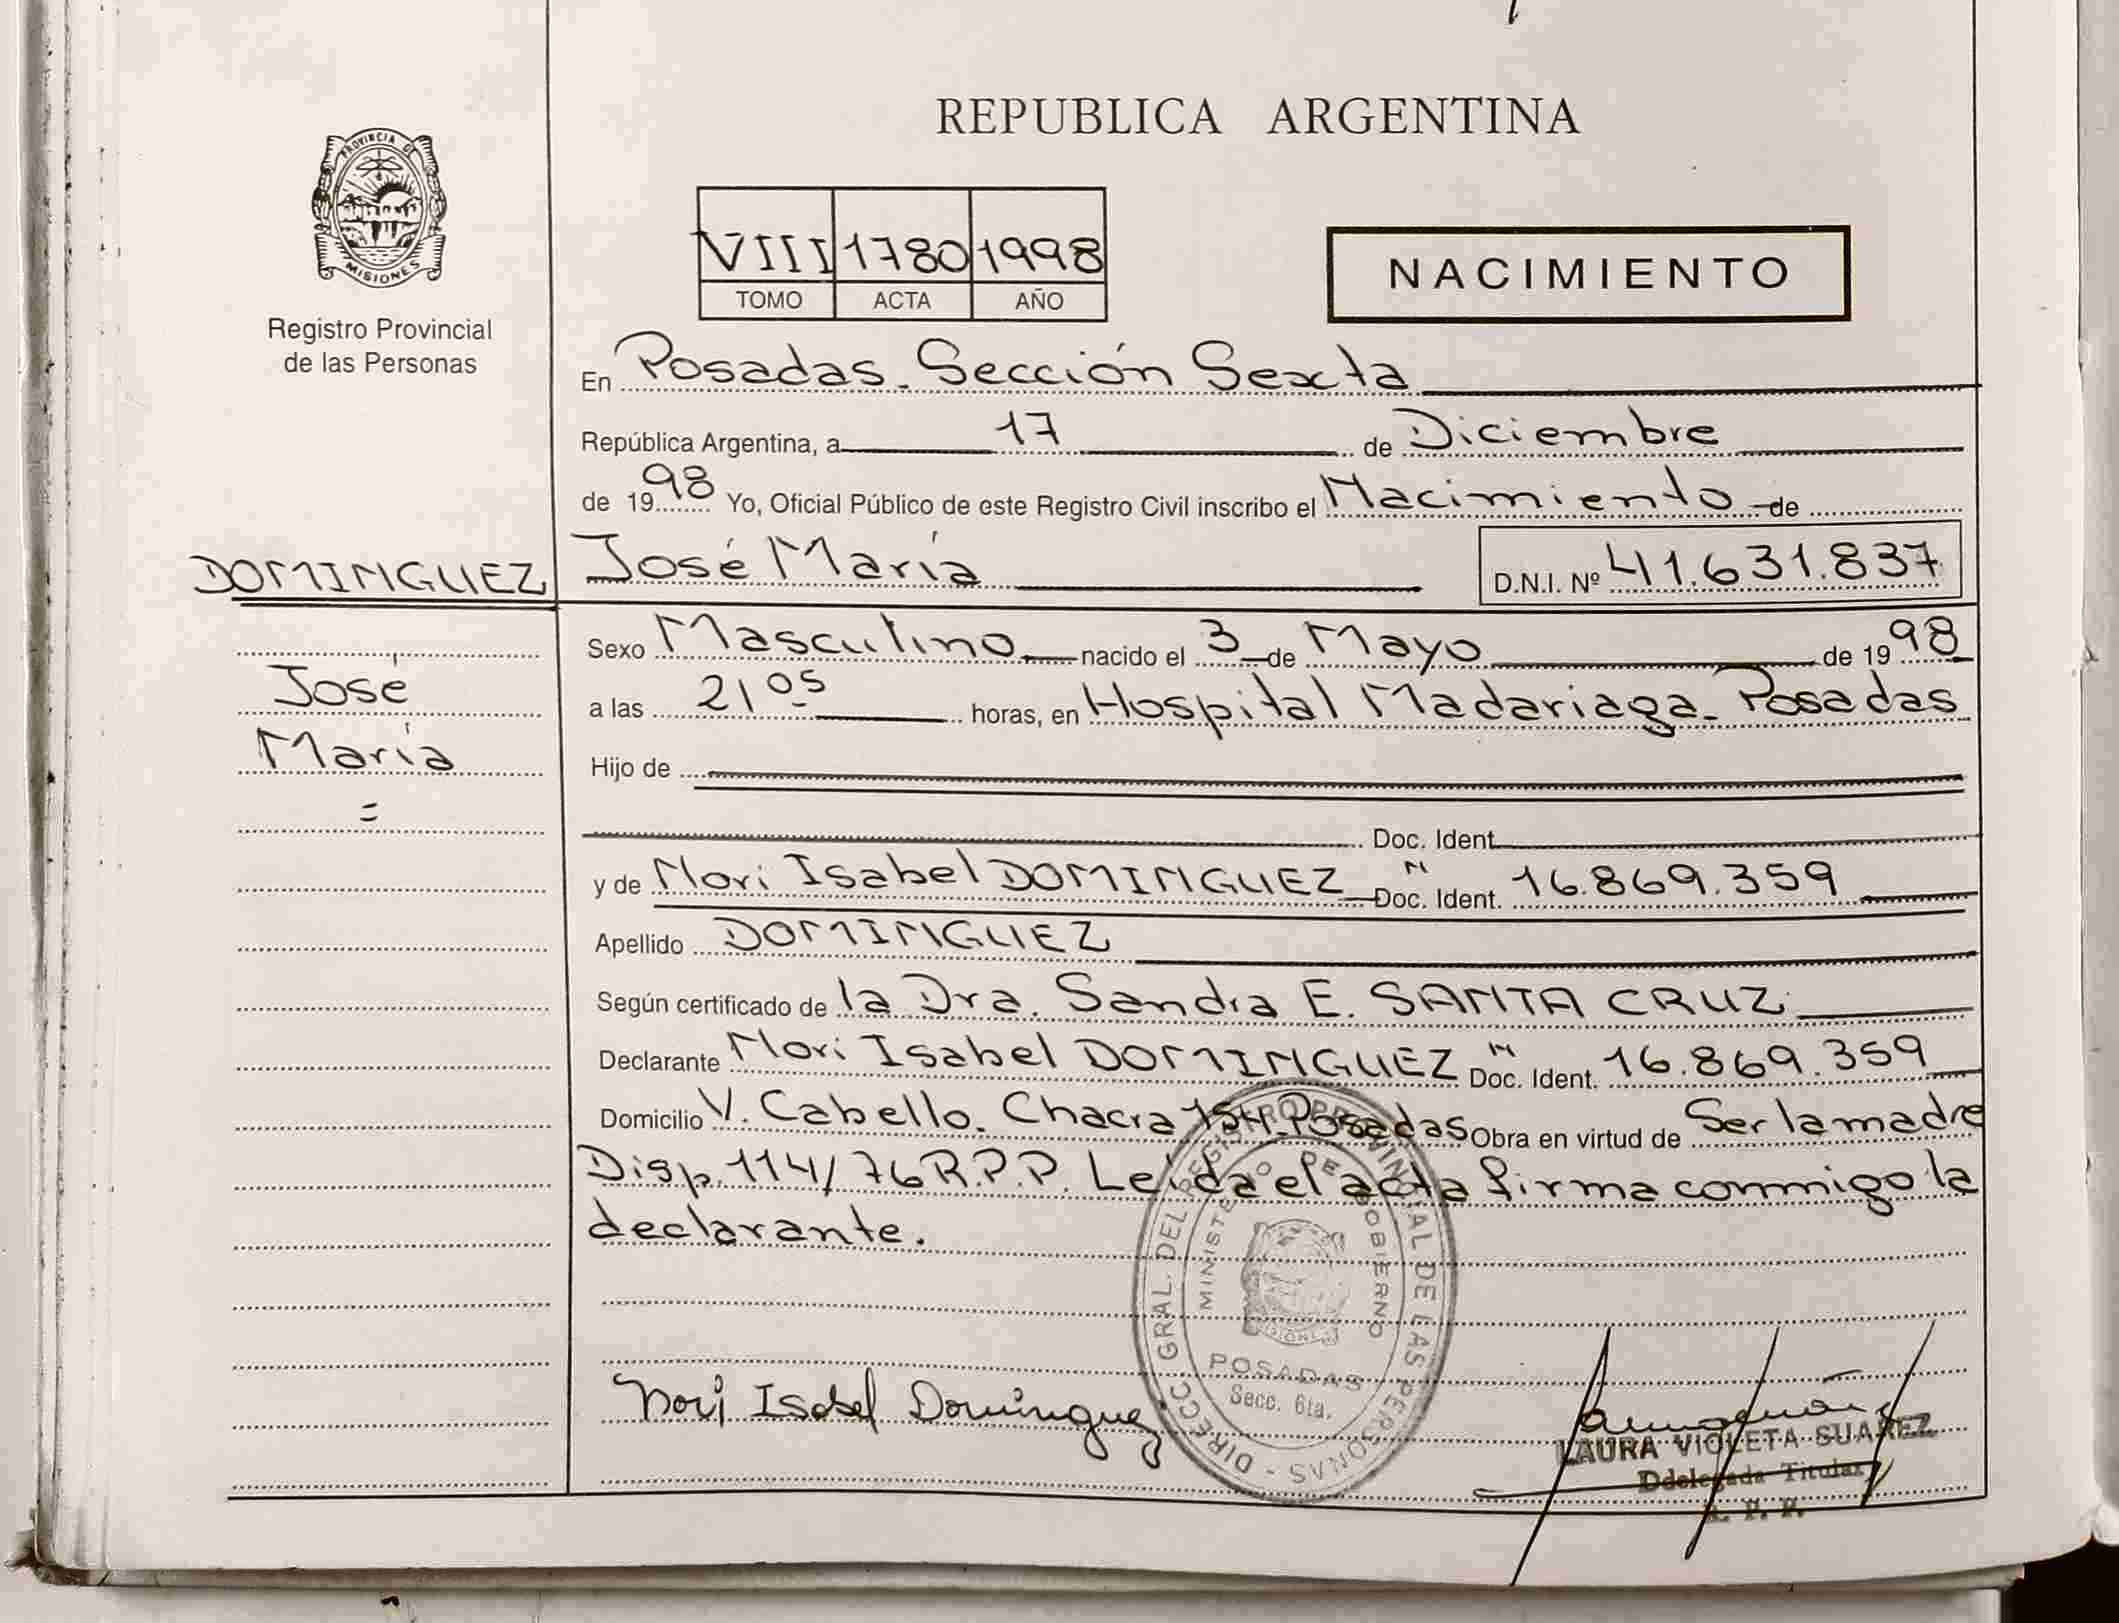 REPUBLICA ARGENTINA
PROVINCIA DE
MISIONES
Registro Provincial
de las Personas
VIII 1780 1998
TOMO ACTA AÑO
NACIMIENTO
En Posadas. Sección Sexta
República Argentina, a 17 de Diciembre
de 1998 Yo, Oficial Público de este Registro Civil inscribo el Nacimiento de
DOMINGUEZ José María D.N.I. Nº 41.631.837
José
María
=
Sexo Masculino nacido el 3 de Mayo de 1998
a las 21 05 horas, en Hospital Madariaga. Posadas
Hijo de
Doc. Ident.
y de Nori Isabel DOMINGUEZ Doc. Ident. N 16.869.359
Apellido DOMINGUEZ
Según certificado de la Dra. Sandra E. SANTA CRUZ
Declarante Nori Isabel DOMINGUEZ Doc. Ident. N 16.869.359
Domicilio V. Cabello. Chacra 154. Posadas Obra en virtud de Ser la madre
Disp. 114/76 R.P.P. Leída el acta firma conmigo la
declarante.
DIRECC. GRAL. DEL REGISTRO PROVINCIAL DE LAS PERSONAS -
MINISTERIO DE GOBIERNO
MISIONES
POSADAS
Secc. 6ta.
Nori Isabel Dominguez
LAURA VIOLETA SUAREZ
Ddelegada Titular
R. P. P.